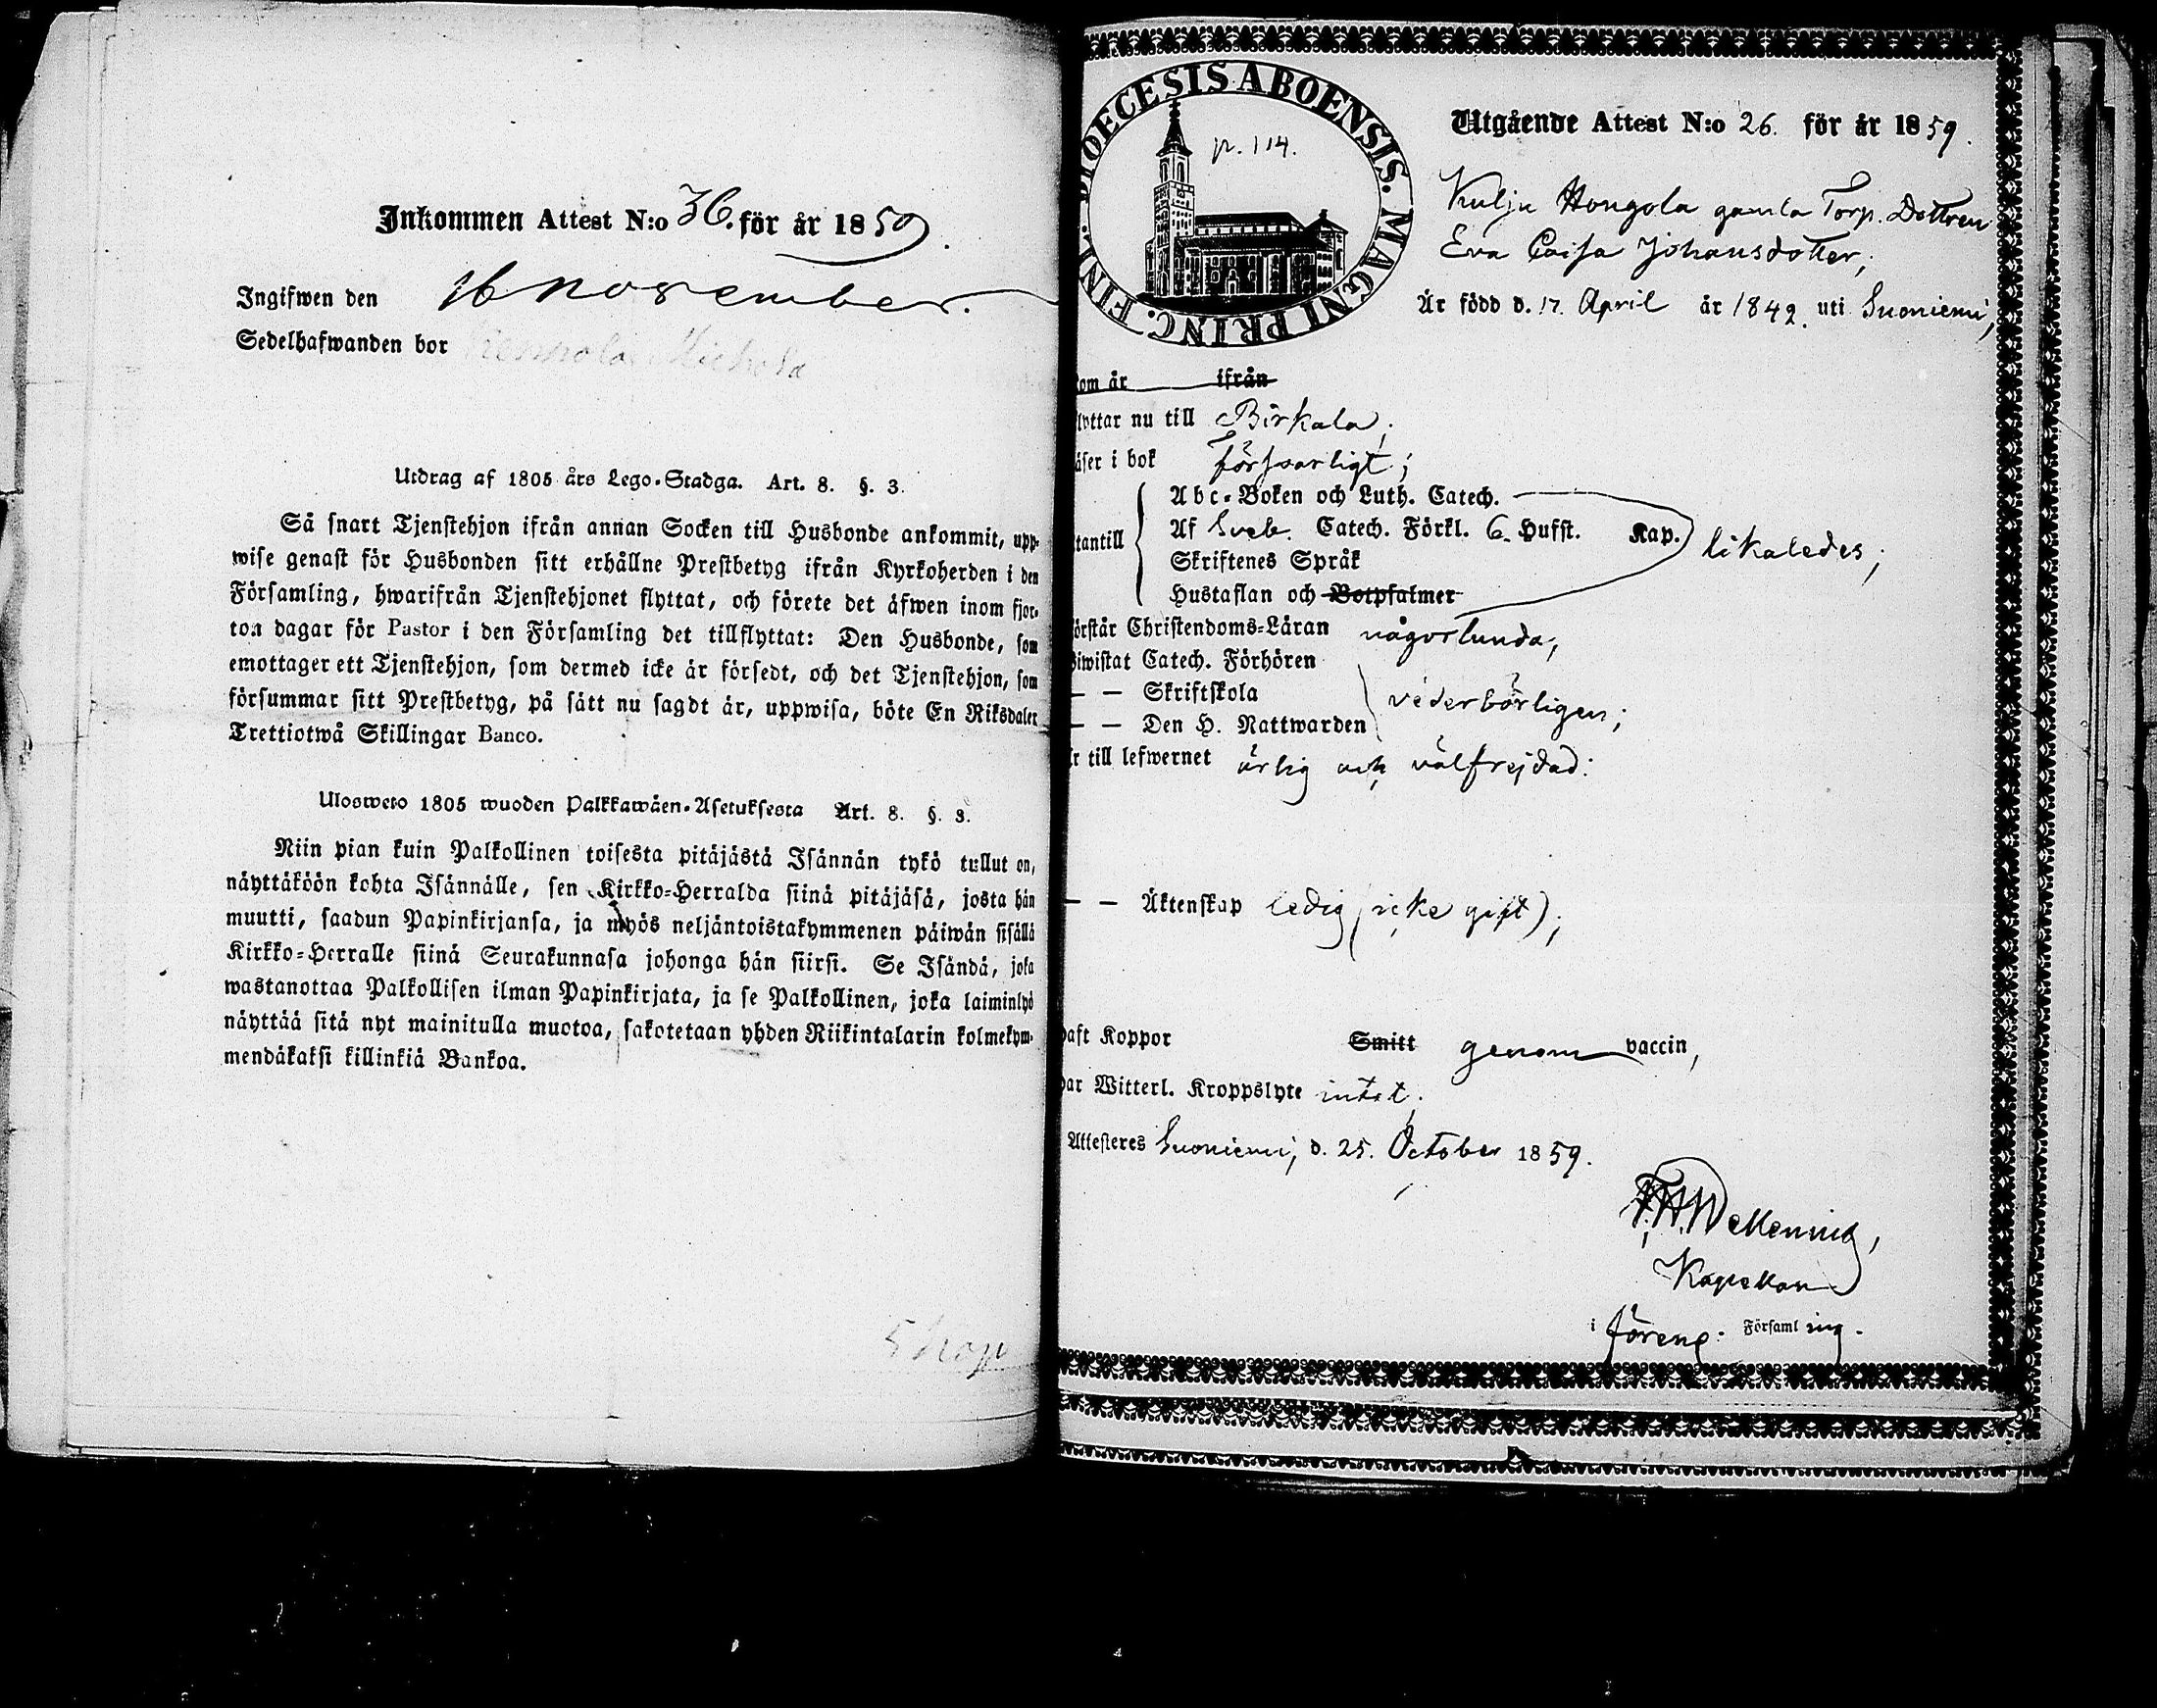 Inkommen Attest N:o 36. för år 1859.
Ingifwen den 16 november.
Sedelhafwanden bor
Utdrag af 1805 års Lego-Stadga. Art. 8. §. 3.
Så snart Tjenstehjon ifrån annan Socken till Husbonde ankommit, upp-
wise genast för Husbonden sitt erhållne Prestbetyg ifrån Kyrkoherden i den
Församling, hwarifrån Tjenstehjonet flyttat, och förete det äfwen inom fjor-
ton dagar för Pastor i den Församling det tillflyttat: Den Husbonde, som
emottager ett Tjenstehjon, som dermed icke är försedt, och det Tjenstehjon, som
försummar sitt Prestbetyg, på sätt nu sagdt är, uppwisa, böte En Riksdaler
Trettiotwå Skillingar Banco.
Ulosweto 1805 wuoden Palkkawäen-Asetuksesta Art. 8. §. 3.
Niin pian kuin Palkollinen toisesta pitäjästä Isännän tykö tullut on,
näyttäköön kohta Isännälle, sen Kirkko-Herralda siinä pitäjäsä, josta hän
muutti, saadun Papinkirjansa, ja myös neljäntoistakymmenen päiwän sisällä
Kirkko-Herralle siinä Seurakunnasa johonga hän siirsi. Se Isändä, joka
wastanottaa Palkollisen ilman Papinkirjata, ja se Palkollinen, joka laiminlyö
näyttää sitä nyt mainitulla muotoa, sakotetaan yhden Riikintalarin kolmekym-
mendäkaksi killinkiä Bankoa.
DIOECESIS ABOENSIS. MAGNI PRINC. FINL.
p. 114.
Utgående Attest N:o 26. för år 1859.
Kulju Hongola gamla Torp. Dottren
Eva Caisa Johansdotter,
Är född d. 17. April år 1842. uti Suoniemi,
kom år ifrån
flyttar nu till Birkala;
läser i bok försvarligt;
utantill
Abc-Boken och Luth. Catech.
Af Sveb. Catech. Förkl. 6. Hufst. Kap.
Skriftenes Språk
Hustaflan och Botpsalmer
likaledes;
förstår Christendoms-Läran någorlunda;
Biwistat Catech. Förhören
— — Skriftskola
— — Den H. Nattwarden
vederbörligen;
är till lefwernet ärlig och välfrejdad:
— — Äktenskap ledig (icke gift);
haft Koppor Smitt genom vaccin,
har Witterl. Kroppslyte intet.
Attesteres Suoniemi, d. 25. October 1859.
Kapellan
i föreng. Församling.